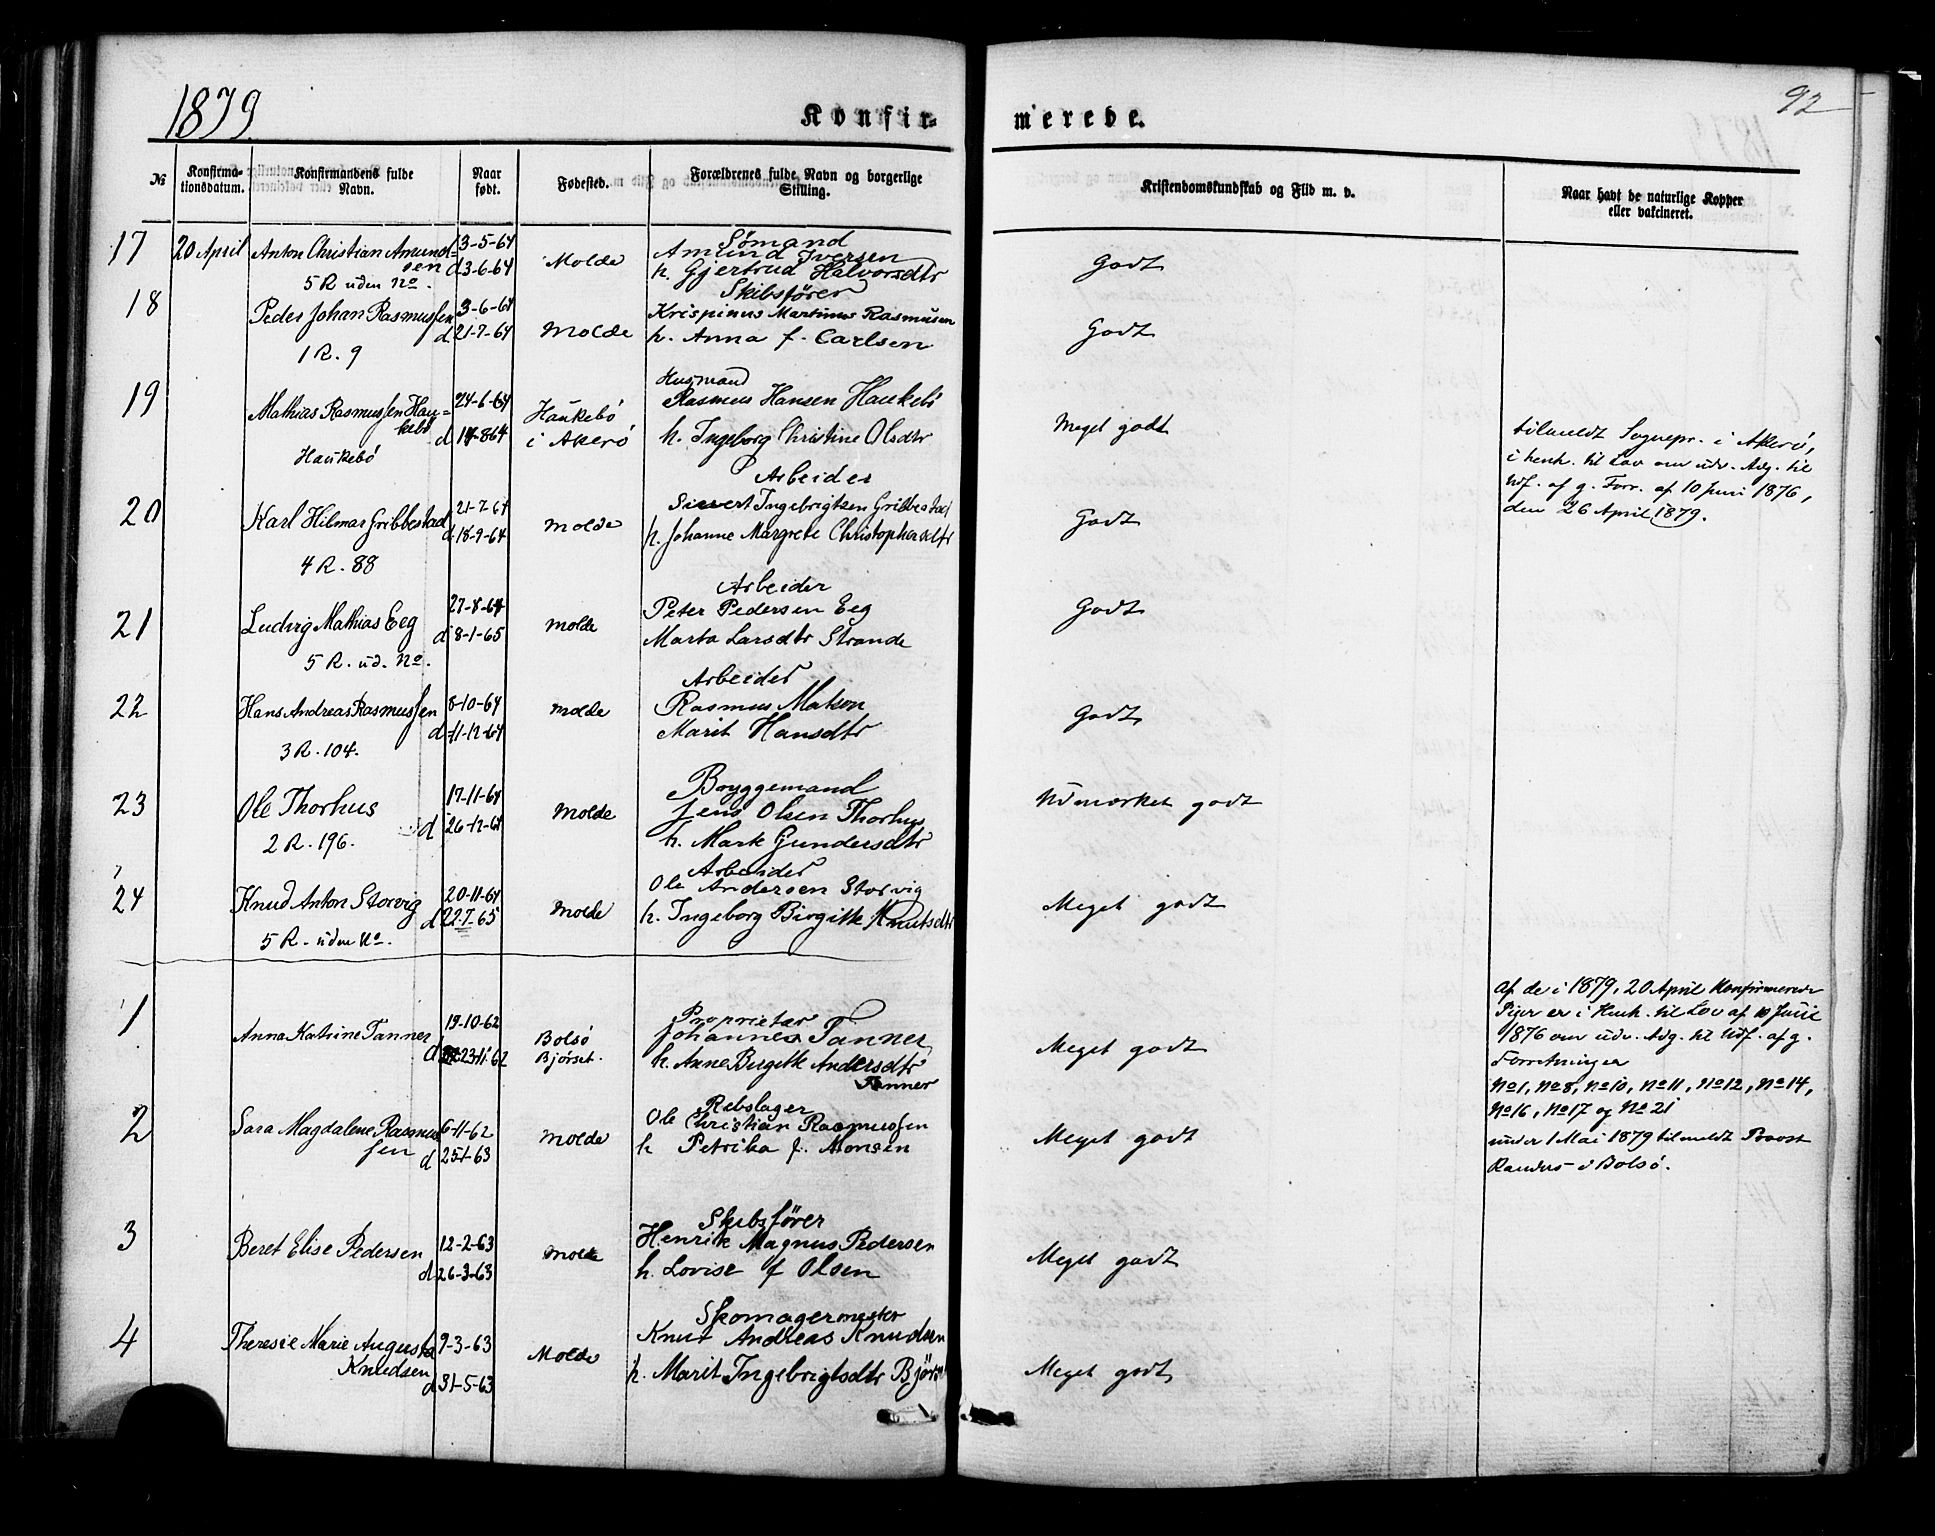 1879
Konfir-
merede.
92
№
Konfirma-
tionsdatum.
Konfirmandens fulde
Navn.
Naar
født.
Fødested.
Forældrenes fulde Navn og borgerlige
Stilling.
Kristendomskundskab og Flid m. v.
Naar havt de naturlige Kopper
eller vakcineret.
17 20 April Anton Christian Amund-
sen
5 R uden No.
3-5-64
d 3-6-64
Molde
Sømand
Amund Iversen
h. Gjertrud Halvorsdtr
Godt
18 Peder Johan Rasmussen
1 R. 9
3-6-64
d 21-7-64
Molde
Skibsfører
Krispinus Martinus Rasmusen
h. Anna f. Carlsen
Godt
19 Mathias Rasmussen Hau-
kebø
Haukebø
24-6-64
d 14-8 64
Haukebø
i Akerø
Husmand
Rasmus Hansen Haukebø
h. Ingeborg Christine Olsdtr
Meget godt
tilmeldt Sognepr. i Akerø,
i henh. til Lov om udv. Adg. til
Udf. af g. Forr. af 10 Juni 1876,
den 26 April 1879.
20 Karl Hilmar Gribbestad
4 R. 88
21-7-64
d. 18-9-64
Molde
Arbeider
Sivert Ingebrigtsen Gribbestad
h. Johanne Margrete Christophersdtr
Godt
21 Ludvig Mathias Eeg
5 R. ud. No.
27-8-64
d 8-1-65
Molde
Arbeider
Peter Pedersen Eeg
Marta Larsdtr Strande
Godt
22 Hans Andreas Rasmussen
3 R. 104.
8-10-64
d 11-12-64
Molde
Arbeider
Rasmus Matson
Marit Hansdtr
Godt
23 Ole Thorhus
2 R. 196.
17-11-64
d 26-12-64
Molde
Bryggemand
Jens Olsen Thorhus
h. Marte Gundersdtr
Udmærket godt
24 Knud Anton Storvig
5 R. uden No.
20-11-64
d 22.7.65
Molde
Arbeider
Ole Andersen Storvig
h. Ingeborg Birgitte Knutsdtr
Meget godt
1 Anna Katrine Tanner
19-10-62
d 23-11-62
Bolsø
Bjørset.
Proprietær
Johannes Tanner
h. Anne Birgitte Andersdtr
Tanner
Meget godt
af de i 1879, 20 April Konfirmerede
Piger er i Henh. til Lov af 10 Juni
1876 om udv. Adg. til Udf. af g.
Forretninger
No 1, No 8, No 10, No 11, No 12, No 14,
No 16, No 17 og No 21
under 1 Mai 1879 tilmeldt Provst
Randers i Bolsø.
2 Sara Magdalene Rasmus-
sen
6-11-62
d 25-1-63
Molde
Rebslager
Ole Christian Rasmussen
h Petrika f. Monsen
Meget godt
3 Beret Elise Pedersen
12-2-63
d 26-3-63
Molde
Skibsfører
Henrik Magnus Pedersen
h. Lovise f Olsen
Meget godt
4 Theresie Marie Augusta
Knudsen
9-3-63
d 31-5-63
Molde
Skomagermester
Knut Andreas Knudsen
h. Marit Ingebrigtsdtr
Meget godt